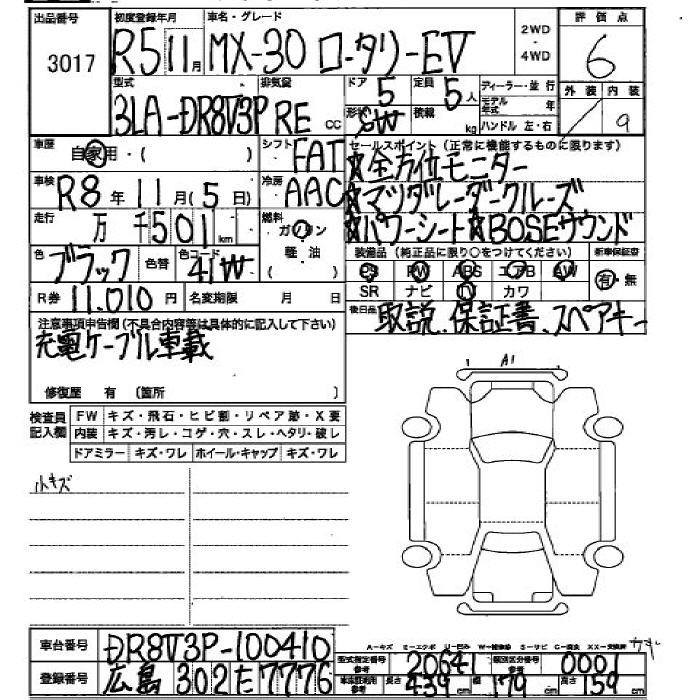 出品番号 初度登録年月 車名・グレード 2WD・4WD 評価点
3017 R5 11月 MX-30 ロータリーEV 6
型式 排気量 ドア 5 定員 5人 ディーラー・並行 外装 内装
3LA-DR8V3P RE cc 形状 SW 積載 kg モデル年式 年 9
ハンドル 左・右
車歴 自家用・( ) シフト FAT セールスポイント(正常に機能するものに限ります)
☆全方位モニター
車検 R8年11月(5日) 冷房 AAC ☆マツダレーダークルーズ
走行 万 千501km 燃料 ガソリン ☆パワーシート☆BOSEサウンド
軽・油
( )
色 ブラック 色替 色コード 41W 装備品(純正品に限り○をつけてください) 新車保証書
PS PW ABS エアB AW 有・無
R券 11,010円 名変期限 月 日 SR ナビ TV カワ
後日品 取説、保証書、スペアキー
注意事項申告欄(不具合内容等は具体的に記入して下さい)
充電ケーブル車載
修復歴 有 〔箇所 〕
A1
検査員記入欄 FW キズ・飛石・ヒビ割・リペア跡・X要
内装 キズ・汚レ・コゲ・穴・スレ・ヘタリ・破レ
ドアミラー キズ・ワレ ホイール・キャップ キズ・ワレ
小キズ
車台番号 DR8V3P-100410
型式指定番号 参考 20641 類別区分番号 参考 0001
登録番号 広島 302 た 7776
参考 439cm 幅 179cm 高さ 159cm